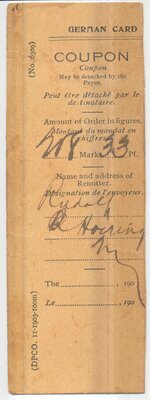 GERMAN CARD
(No. 6509)
COUPON
Coupon
May be detached by the
Payee.
Peut être détaché par le
destinataire.
Amount of Order in figures.
Montant du mandat en
chiffres
Mark 33 Pf.
Name and address of
Remitter.
Désignation de l'envoyeur.
Rudolf
The 190
Le 190
(DPCO. 11-1903-100m)